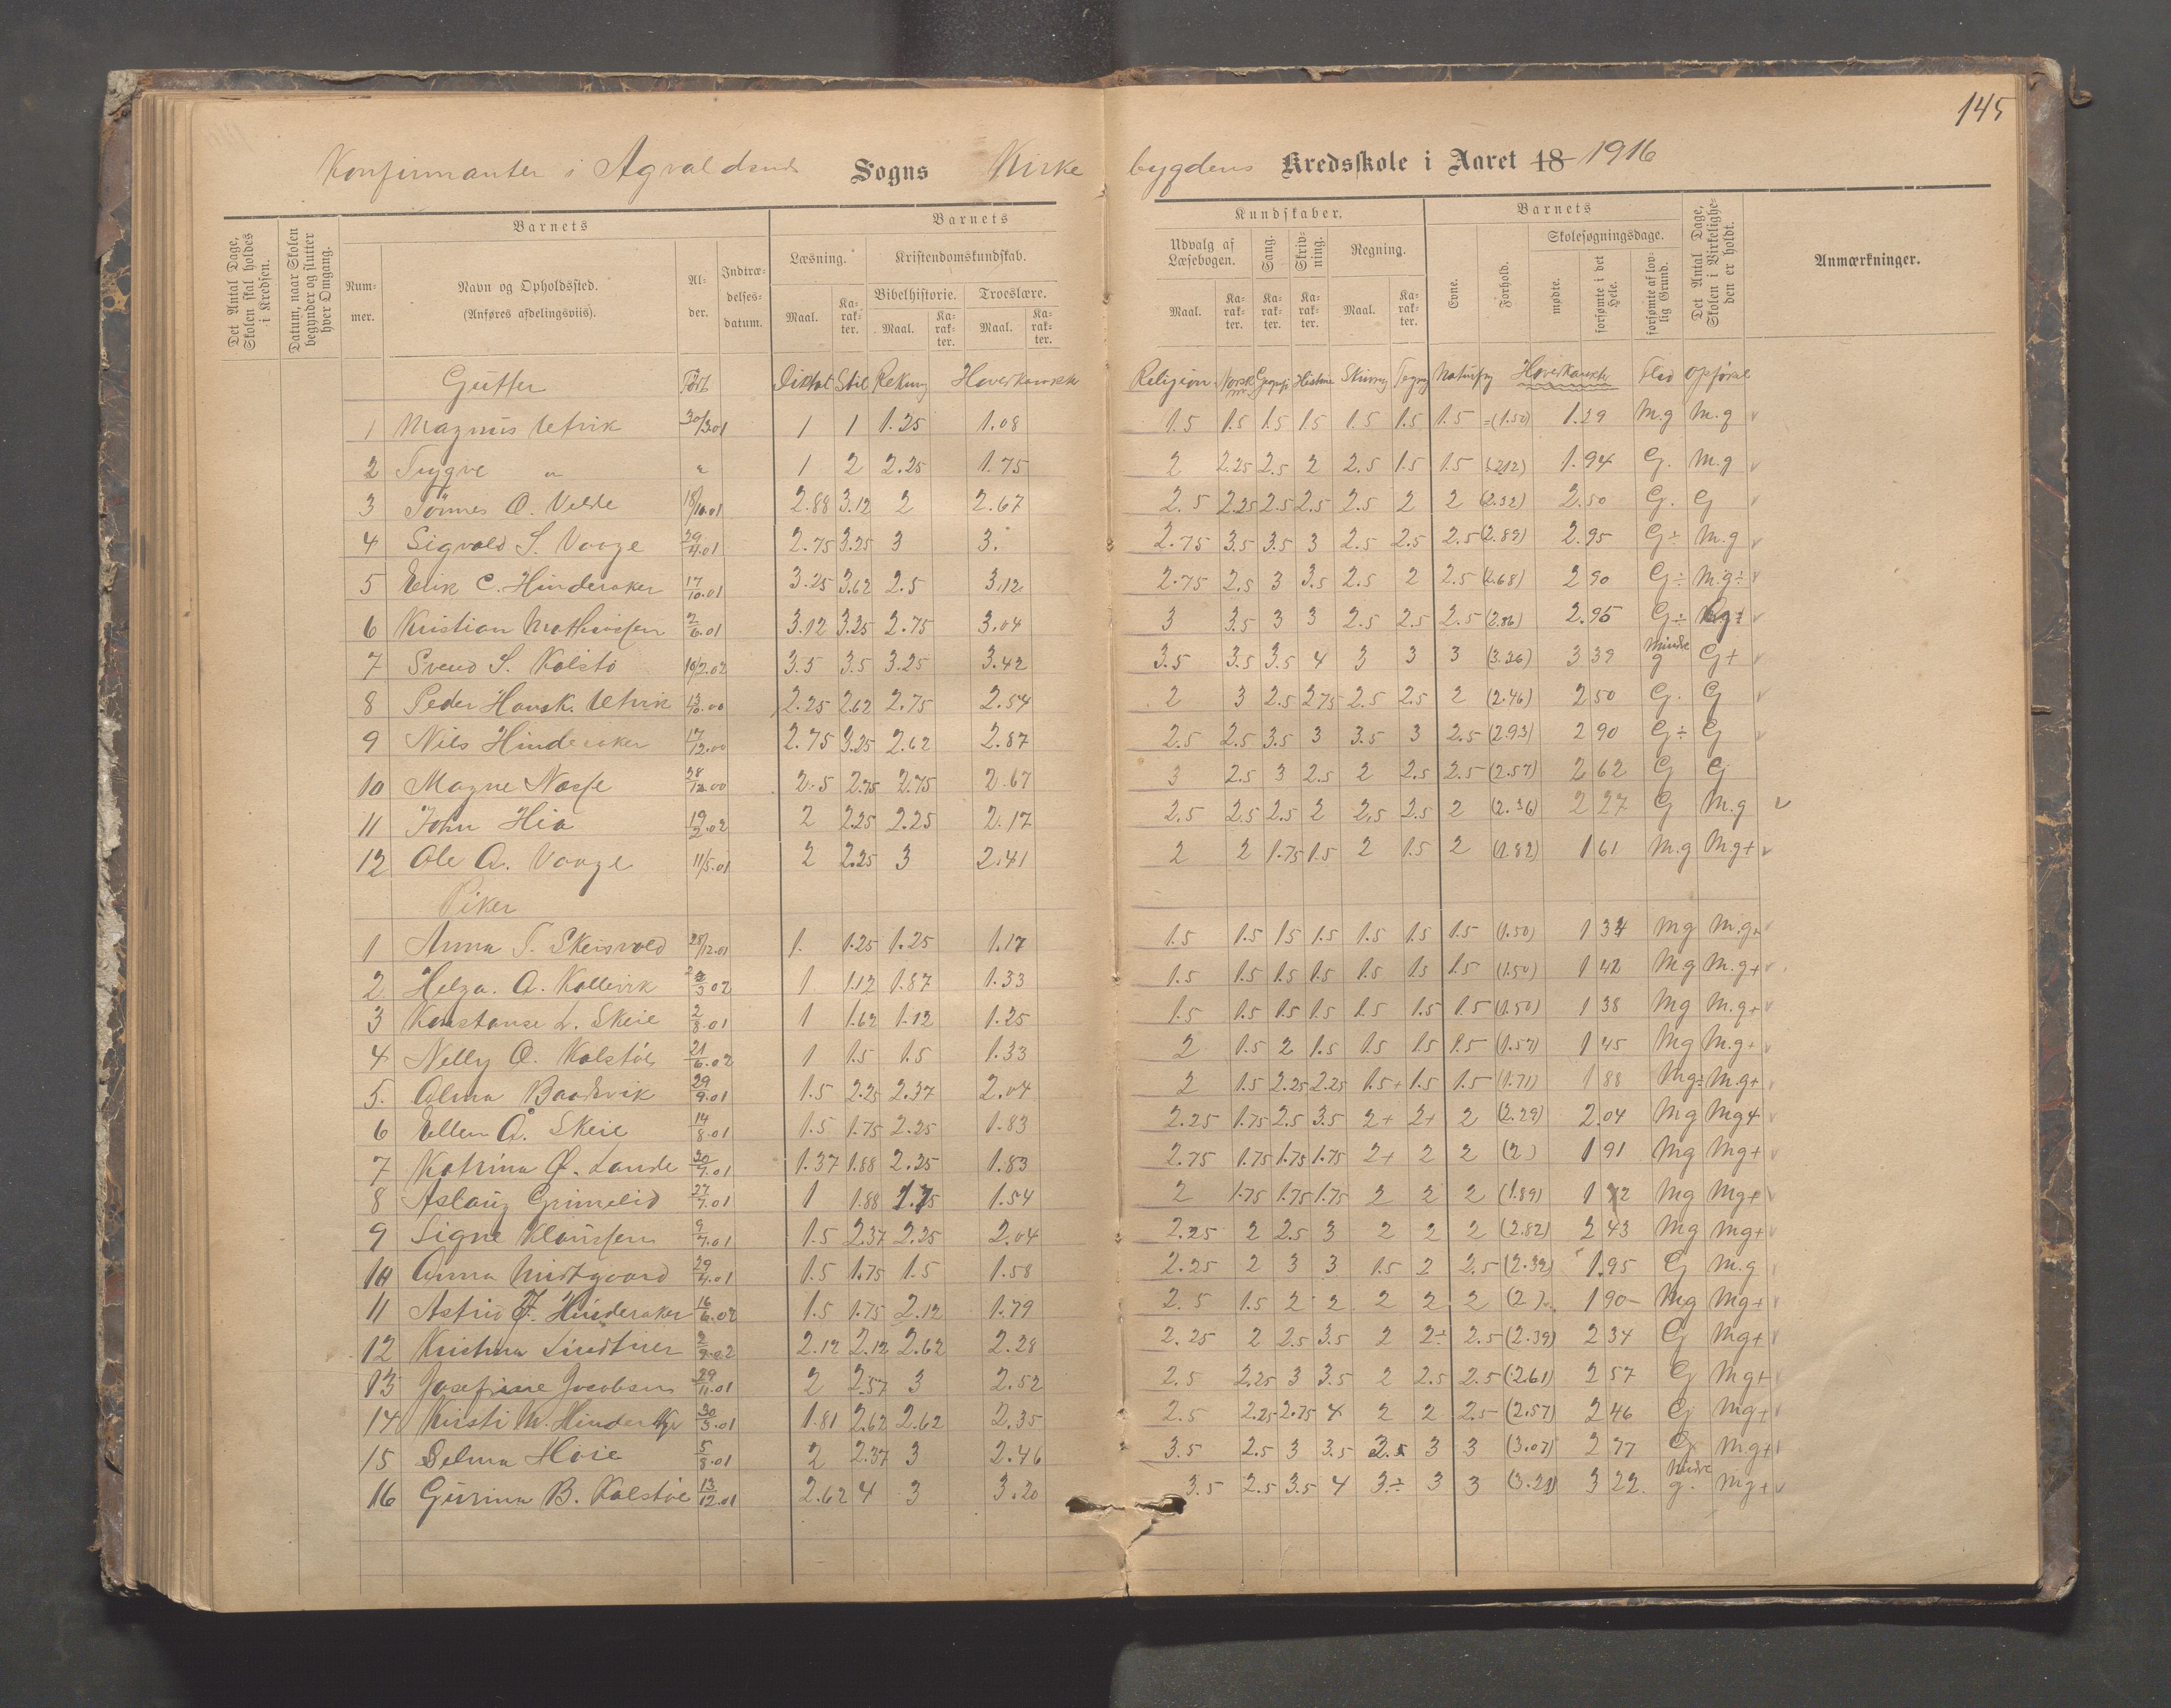 145
Konfirmanter i Agvaldsnes Sogns Kirkebygdens Kredsskole i Aaret 18 1916
Det Antal Dage, Skolen skal holdes i Kredsen.
Datum, naar Skolen begynder og slutter hver Omgang.
Barnets
Nummer.
Navn og Opholdssted. (Anføres afdelingsviis).
Alder.
Indtrædelsesdatum.
Barnets
Læsning.
Maal. Karakter.
Kristendomskundskab.
Bibelhistorie. Troeslære.
Maal. Karakter. Maal. Karakter.
Kundskaber.
Udvalg af Læsebogen.
Maal. Karakter.
Sang. Karakter.
Skrivning. Karakter.
Regning.
Maal. Karakter.
Barnets
Evne. Forhold.
Skolesøgningsdage.
mødte. forsømte i det Hele. forsømte af lovlig Grund.
Det Antal Dage, Skolen i Virkeligheden er holdt.
Anmærkninger.
Gutter Født Diktat Stil Rekning Hoverkarakter Religion Norsk Geografi Historie Skrivning Tegning Naturfag Hoverkarakter Flid Opførsel
1 Magnus Utvik 30/3.01 1 1 1.25 1.08 1.5 1.5 1.5 1.5 1.5 1.5 1.5 =(1.50) 1.29 M.g M.g v
2 Trygve " " 1 2 2.25 1.75 2 2.25 2.5 2 2.5 1.5 1.5 (2.12) 1.94 G. M.g v
3 Tönnes O. Velde 18/10.01 2.88 3.12 2 2.67 2.5 2.25 2.5 2.5 2.5 2 2 (2.32) 2.50 G. G v
4 Sigvald S. Vaage 29/4.01 2.75 3.25 3 3. 2.75 3.5 3.5 3 2.5 2.5 2.5 (2.89) 2.95 G÷ M.g v
5 Erik C. Hinderaker 17/10.01 3.25 3.62 2.5 3.12 2.75 2.5 3 3.5 2.5 2 2.5 (2.68) 2 90 G÷ M.g÷ v
6 Kristian Mathiassen 2/6.01 3.12 3.25 2.75 3.04 3 3.5 3 3 2.5 2.5 2.5 (2.86) 2.95 G÷ v
7 Svend S. Kolstö 10/2.02 3.5 3.5 3.25 3.42 3.5 3.5 3.5 4 3 3 3 (3.36) 3 39 Mindre g G+ v
8 Peder Hansk. Utvik 13/10.00 2.25 2.62 2.75 2.54 2 3 2.5 2.75 2.5 2.5 2 (2.46) 2 50 G. G v
9 Nils Hinderaker 17/12.00 2.75 3.25 2.62 2.87 2.5 2.5 3.5 3 3.5 3 2.5 (2.93) 2 90 G÷ G v
10 Magne Nesse 28/12.00 2.5 2.75 2.75 2.67 3 2.5 3 2.5 2 2.5 2.5 (2.57) 2 62 G G
11 John Hia 19/2.02 2 2.25 2.25 2.17 2.5 2.5 2.5 2 2.5 2.5 2 (2.36) 2 27 G M.g v
12 Ole A. Vaage 11/5.01 2 2.25 3 2.41 2 2 1.75 1.5 2 1.5 2 (1.82) 1 61 M.g M.g+ v
Piker
1 Anna T. Skeisvold 28/12.01 1. 1.25 1.25 1.17 1.5 1.5 15 1.5 1.5 1.5 1.5 (1.50) 1 34 Mg M.g+ v
2 Helga. A. Kallevik 1 1.12 1.87 1.33 1.5 1.5 1.5 1.5 1.5 1.5 1.5 (1.50) 1 42 Mg M.g+ v
3 Konstanse L. Skeie 2/8.01 1 1.62 1.12 1.25 1.5 1.5 1.5 1.5 1.5 1.5 1.5 (1.50) 1 38 Mg M.g+ v
4 Nelly O. Kolstöe 21/6.02 1 1.5 1.5 1.33 2 1.5 2 1.5 1.5 1.5 1.5 (1.57) 1 45 Mg M.g+ v
5. Alma Baadsvik 29/9.01 1.5 2.25 2.37 2.04 2 1.5 2.25 2.25 1.5+ 1.5 1.5 (1.71) 1 88 Mg÷ M.g+ v
6 Ellen Å. Skeie 14/8.01 1.5 1.75 2.25 1.83 2.25 1.75 2.5 3.5 2+ 2+ 2 (2.29) 2.04 Mg Mg+ v
7 Katrina Ø. Lande 30/7.01 1.37 1.88 2.25 1.83 2.75 1.75 1.75 1.75 2+ 2 2 (2) 1 91 Mg Mg+ v
8 Aslaug Grimelid 27/7.01 1 1.88 1.75 1.54 2 1.75 1.75 1.75 2 2 2 (1.89) 1 72 Mg Mg+ v
9 Signe Klaussen 9/7.01 1.5 2.37 2.25 2.04 2.25 2 2.5 3 2 2 2 (2.82) 2 43 Mg Mg+ v
10 Anna Midtgaard 29/4.01 1.5 1.75 1.5 1.58 2.25 2 3 3 1.5 2 2.5 (2.32) 1.95 G M.g v
11 Astrid Hinderaker 16/6.02 1.5 1.75 2.12 1.79 2.5 1.5 2 2 2 2 2 (2) 1 90- Mg Mg+ v
12 Kristina Lindtner 2/2.02 2.12 2.12 2.62 2.28 2.25 2 2.5 3.5 2 2÷ 2.5 (2.39) 2 34 G Mg+ v
13 Josefine Jacobsen 29/11.01 2 2.57 3 2.52 2.5 2.25 3 3.5 2 2.5 2.5 (2.61) 2 57 G Mg+ v
14 Kirsti M. Hinderaker 30/3.01 1.81 2.62 2.62 2.35 2.5 2.25 2.75 4 2 2 2.5 (2.57) 2 46 G Mg+ v
15 Selma Hoie 5/8.01 2 2.37 3 2.46 3.5 2.5 3 3.5 2.5 3 3 (3.07) 2 77 G M.g+
16 Gurina B. Kolstöe 13/12.01 2.62 4 3 3.20 3.5 2.5 3.5 4 3÷ 3 3 (3.21) 3 22. Mindre g. Mg+ v